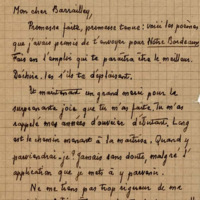 Mon cher Barrailley,
Promesse faite, promesse tenue: voici les poèmes
que j'avais promis de t'envoyer pour Notre Bordeaux
Fais en l'emploi qui te paraîtra être le meilleur.
Déchire-les s'ils te déplaisent.
Et maintenant un grand merci pour la
surprenante joie que tu m'as faite. Tu m'as
rappelé mes années d'ouvrier débutant. Long
est le chemin menant à la maîtrise. Quand y
parviendrai-je? Jamais sans doute, malgré l'
application que je mets à y parvenir.
Ne me tiens pas trop rigueur de me